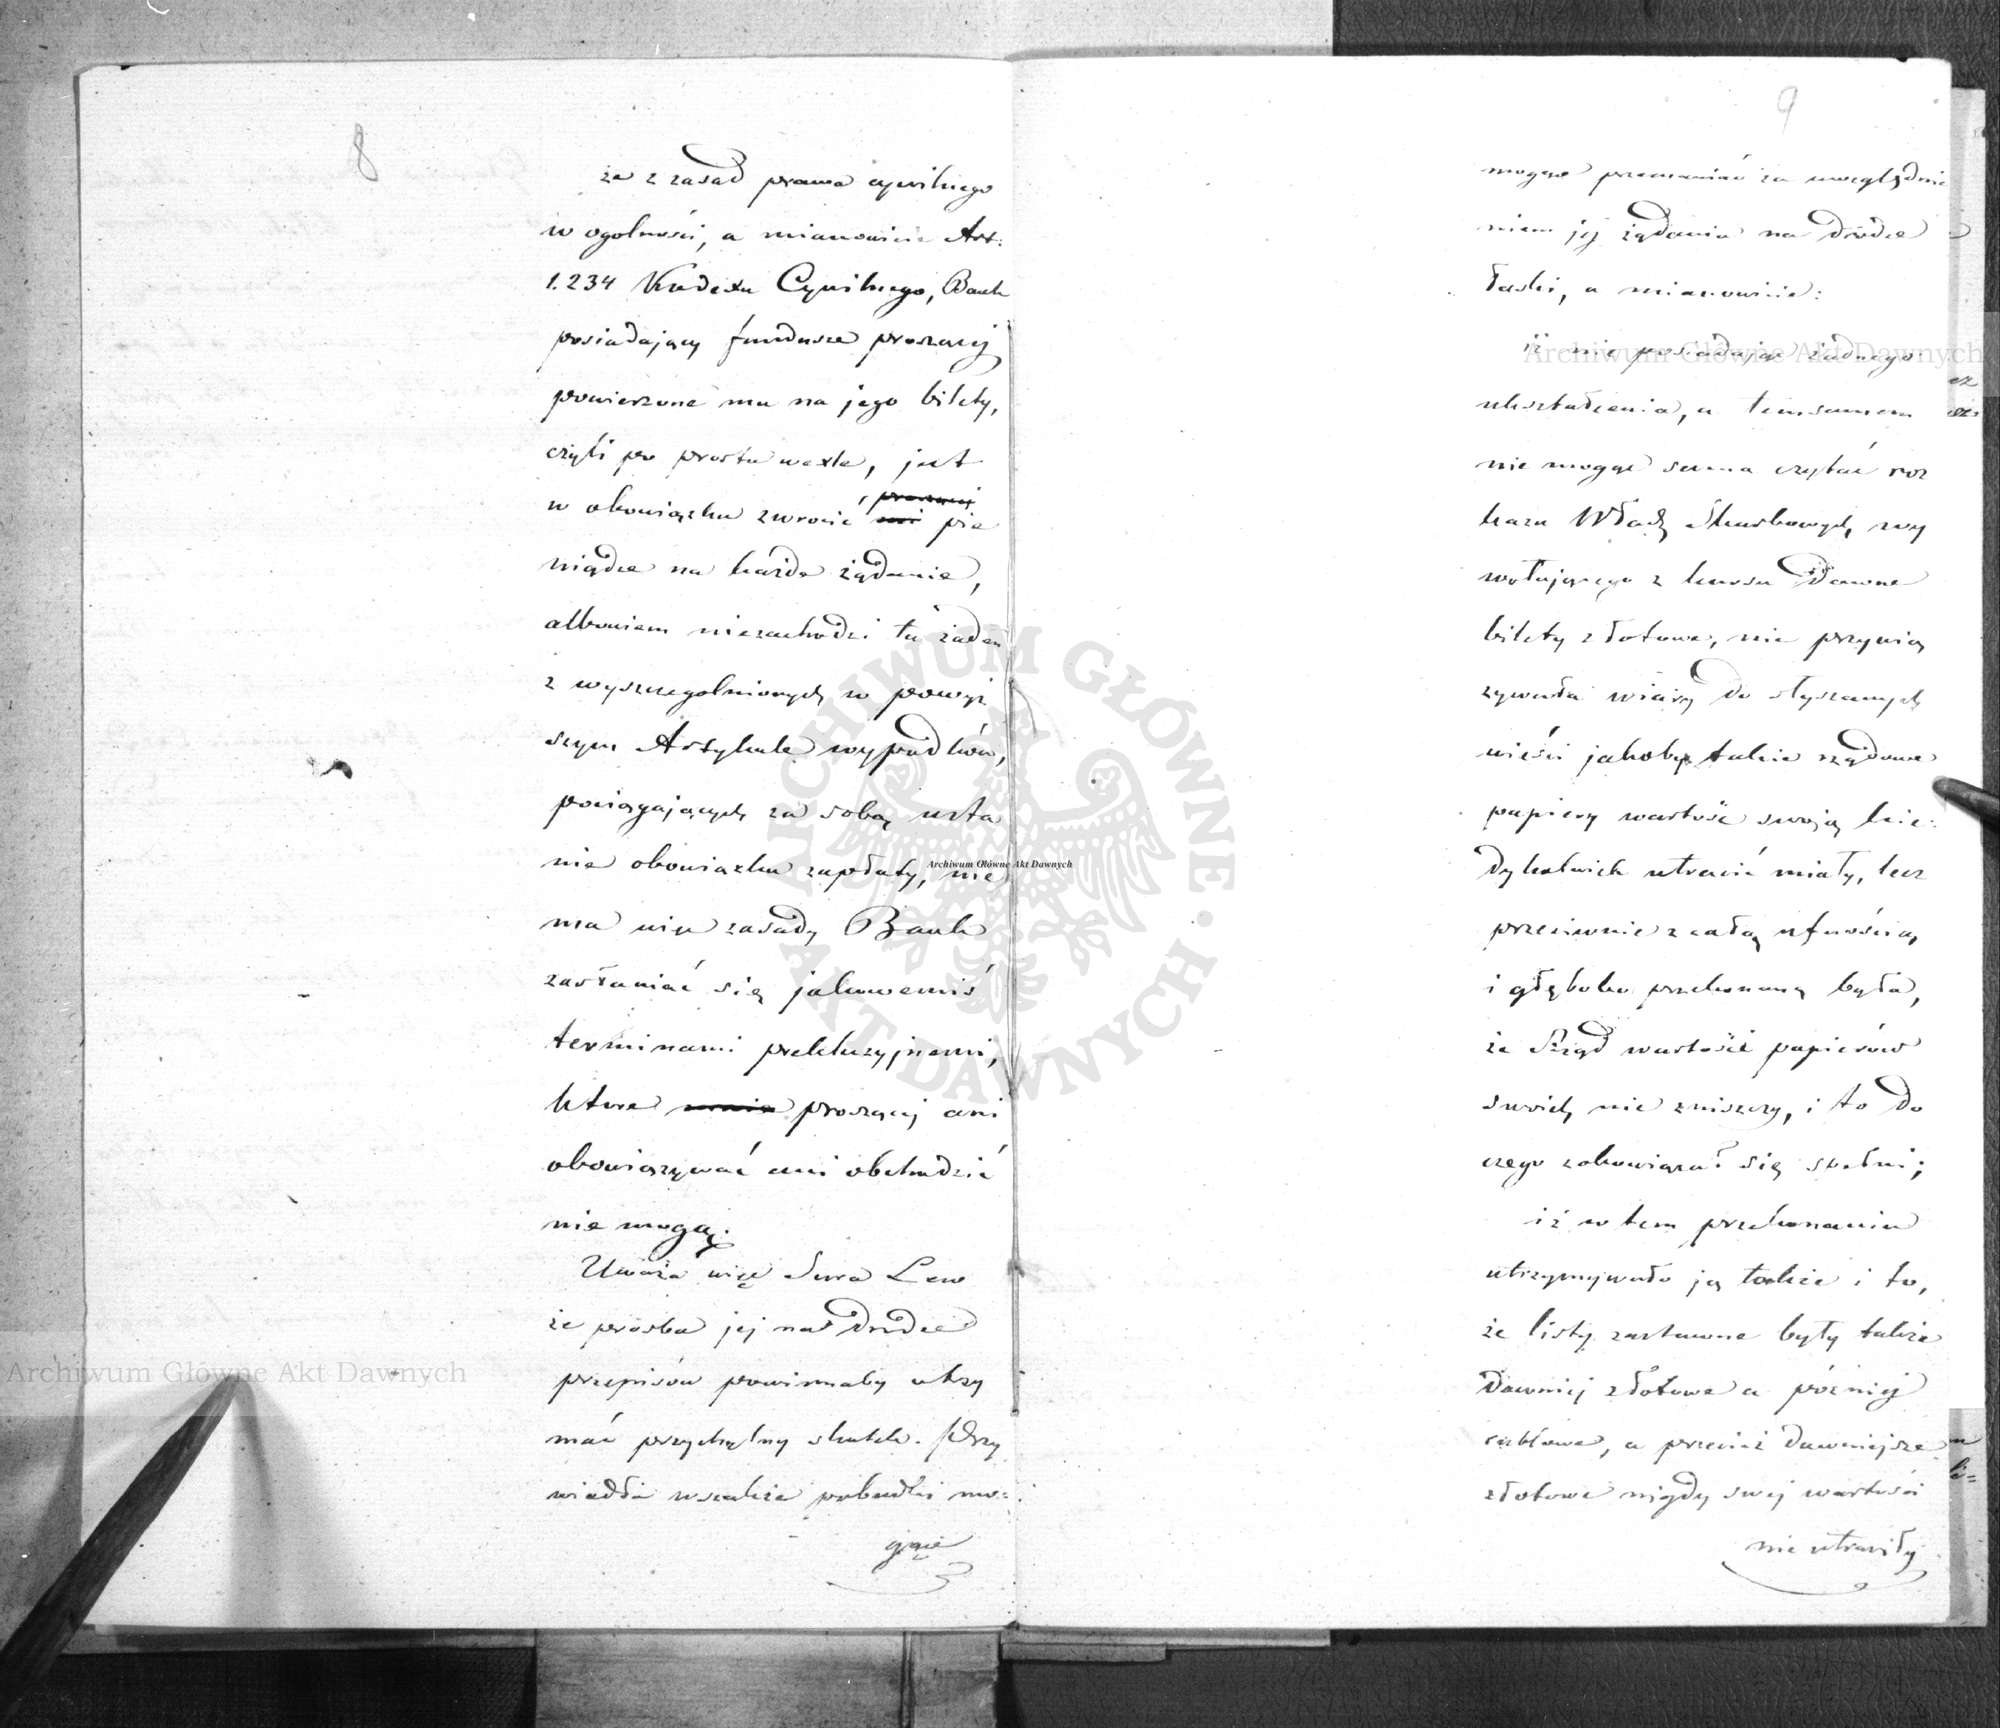 8
że z zasad prawa cywilnego
w ogolności, a mianowicie Art:
1.234 Kodexu Cywilnego, Bank
posiadający fundusze proszącej
powierzone mu na jego bilety,
czyli po prostu wexle, jest
w obowiązku zwrócić proszącej pie
niądze na każde żądanie,
albowiem niezachodzi tu żaden
z wyszczegolnionych w powyż
szym Artykule wypadków,
pociągających za sobą usta
nie obowiązku zapłaty, nie
ma więc zasady Bank
zasłaniać się jakowemiś
terminami prekluzyjnemi,
które proszącej ani
obowiązywać ani obchodzić
nie mogą.
Uważa więc Sura Lew
że prośba jej na drodze
przepisów powinnaby otrzy
mać przychylny skutek. Przy
wiodła wszakże pobudki mo:
gące
9
mogące przemawiać za uwzględnie
niem jej żądania na drodze
łaski, a mianowicie:
iż nie posiadając żadnego
ukształcenia, a temsamem
nie mogąc sama czytać roz
kazu Władz Skarbowych, wy
wołującego z kursu dawne
bilety złotowe, nie przywią
zywała wiary do słyszanych
wieści jakoby takie rządowe
papiery wartość swoją kie:
dykolwiek utracić miały, lecz
przeciwnie z całą ufnością,
i głęboko przekonaną była,
że Rząd wartości papierów
swoich nie zniszczy, i to do
czego zobowiązał się spełni;
iż w tem przekonaniu
utrzymywało ją także i to,
że listy zastawne były także
dawniej złotowe a później
rublowe, a przecież dawniejsze
złotowe nigdy swej wartości
nie utraciły
Archiwum Główne Akt Dawnych
Archiwum Główne Akt Dawnych
Archiwum Główne Akt Dawnych
ARCHIWUM GŁÓWNE • AKT DAWNYCH •